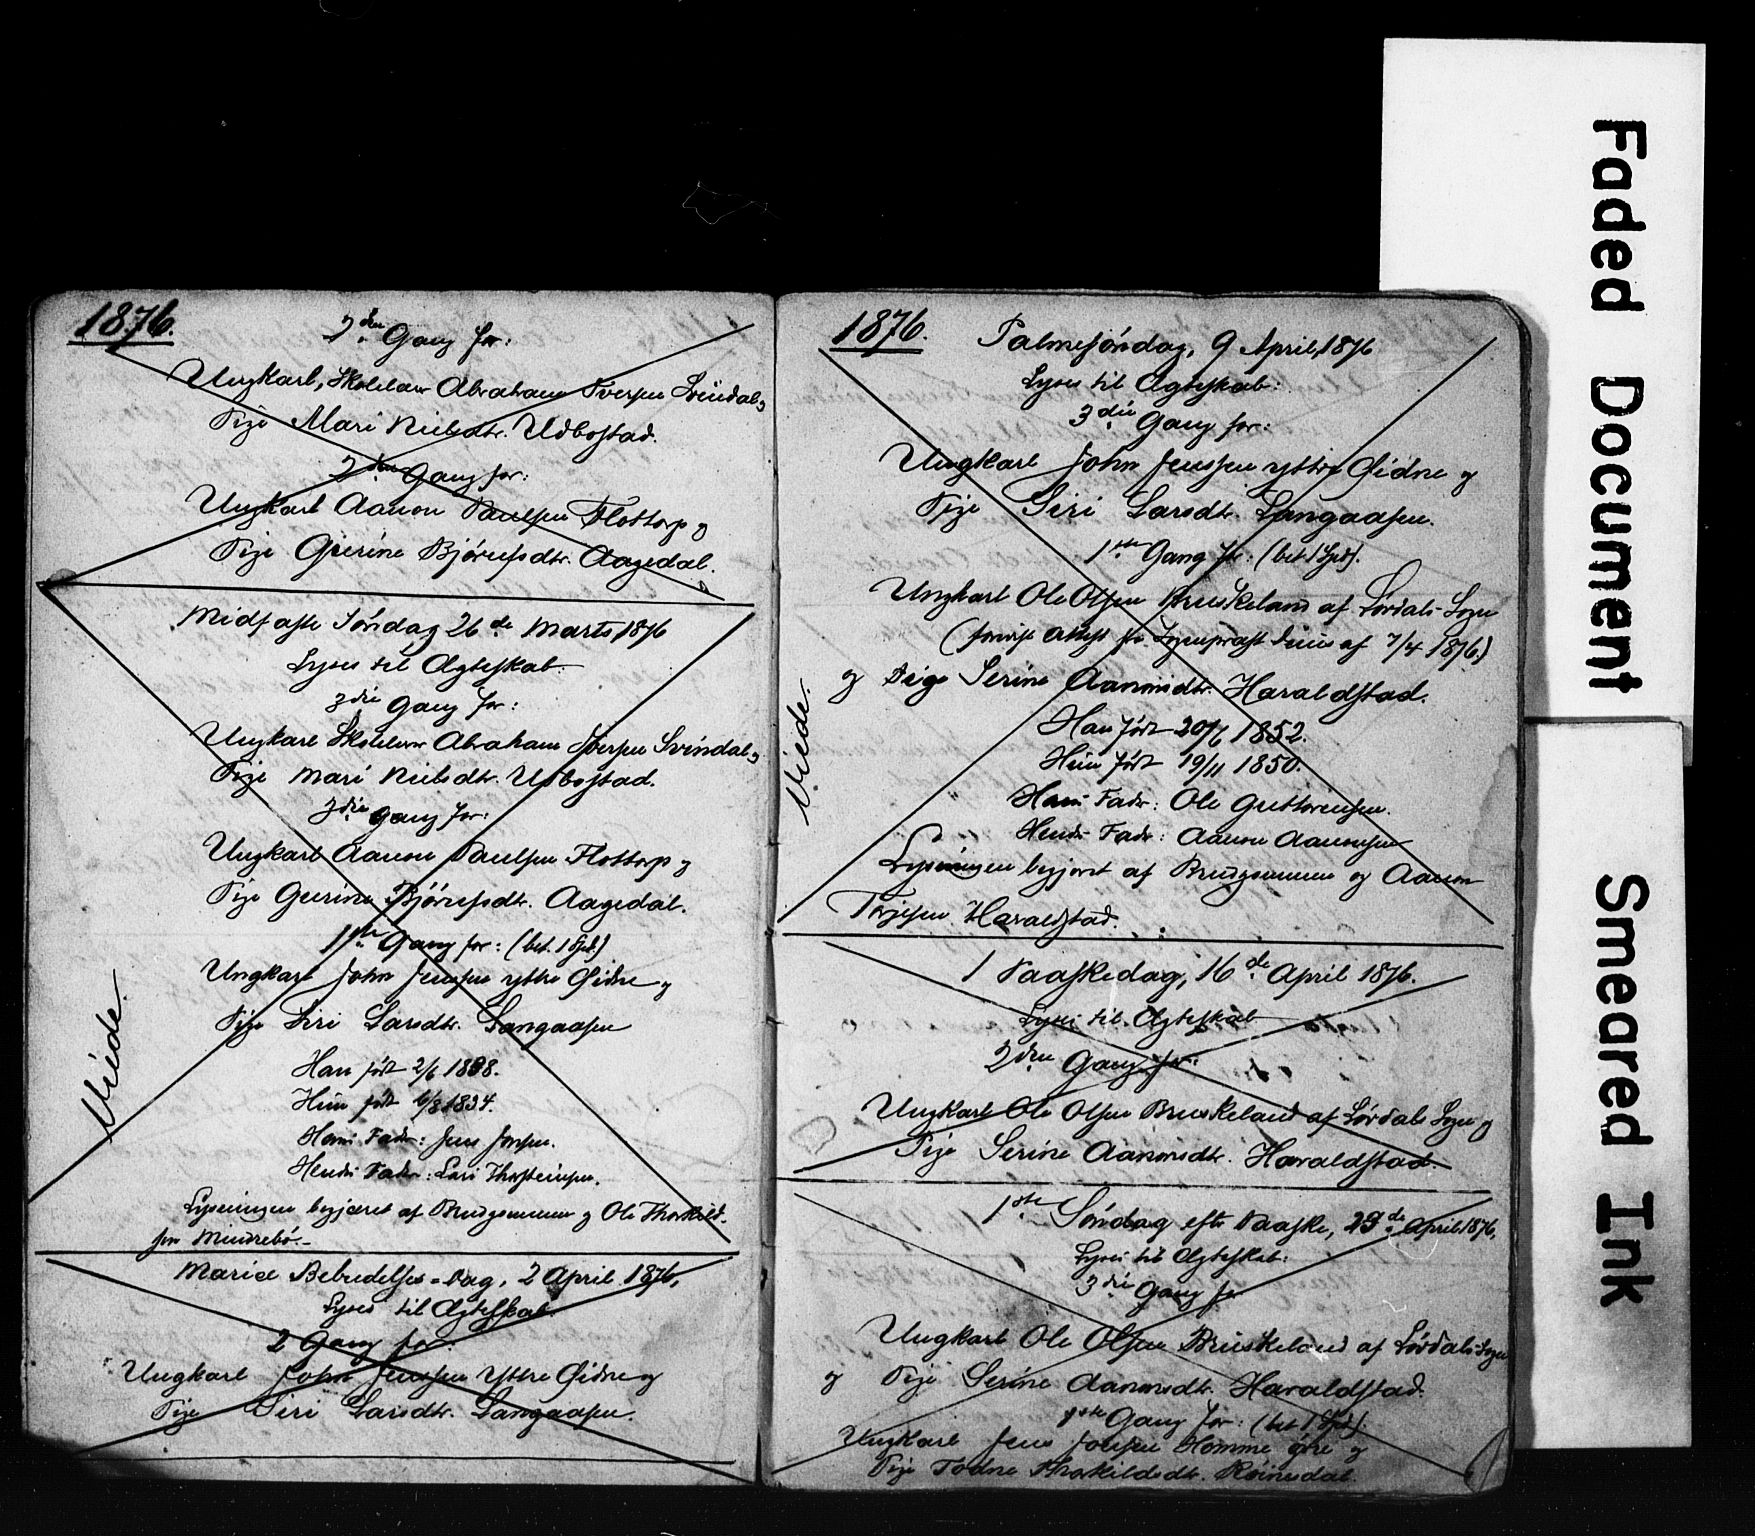 1876.
2den Gang for:
Ungkarl, Skolelærer Abraham Iversen Svindal og
Pige Mari Nielsdtr. Udbostad.
2den Gang for:
Ungkarl Aanon Paulsen Flottorp og
Pige Gurine Bjørufsdtr. Aagedal.
Midfaste Søndag 26de Marts 1876
Lyses til Ægteskab:
3die Gang for:
Ungkarl Skolelærer Abraham Iversen Svindal og
Pige Mari Nielsdtr. Udbostad.
3die Gang for:
Ungkarl Aanon Paulsen Flottorp og
Pige Gurine Bjørufsdtr. Aagedal.
1ste Gang for: (bet. 1 Spd.)
Ungkarl John Jenssen yttre Eidne og
Pige Siri Larsdtr. Langaasen
Han født 2/6 1838.
Hun født 6/8 1834.
Hans Fader: Jens
Hendes Fader: Lars Thorsteinsen.
Lysningen begjæret af Brudgommen og Ole Thorkild-
sen Mindrebø.-
Viede.
Mariæ Bebudelses-Dag, 2 April 1876,
Lyses til Ægteskab:
2 Gang for:
Ungkarl John Jenssen Yttre Eidne og
Pige Siri Larsdtr. Langaasen.
1876.
Palmesøndag, 9 April, 1876
Lyses til Ægteskab:
3die Gang for:
Ungkarl John Jenssen yttre Eidne og
Pige Siri Larsdtr. Langaasen.
1ste Gang for: (bet. 1 Spd.).
Ungkarl Ole Olsen Bruskeland af Lørdals-Sogn
(forevist Attest fra Sognepræst af 7/4 1876.)
og Pige Serine Aanonsdtr. Haraldstad.
Han født 20/6 1852.
Hun født 19/11 1850.
Hans Fader: Ole Guttormsen.
Hendes Fader: Aanon Aanonsen
Lysningen begjæret af Brudgommen og Aanon
Terjesen Haraldstad.
Viede.
1 Paaskedag, 16de April 1876.
Lyses til Ægteskab
2den Gang for:
Ungkarl Ole Olsen Bruskeland af Lørdals Sogn og
Pige Serine Aanonsdtr. Haraldstad.
1ste Søndag efter Paaske, 23de April 1876,
Lyses til Ægteskab:
3die Gang for
Ungkarl Ole Olsen Bruskeland af Lørdals-Sogn
og Pige Serine Aanonsdtr. Haraldstad.
1ste Gang for: (bet 1 Spd).
Ungkarl Jens Homme øvre og
Pige Todne Thorkildsdtr. Røinesdal.
Faded Document
Smeared Ink